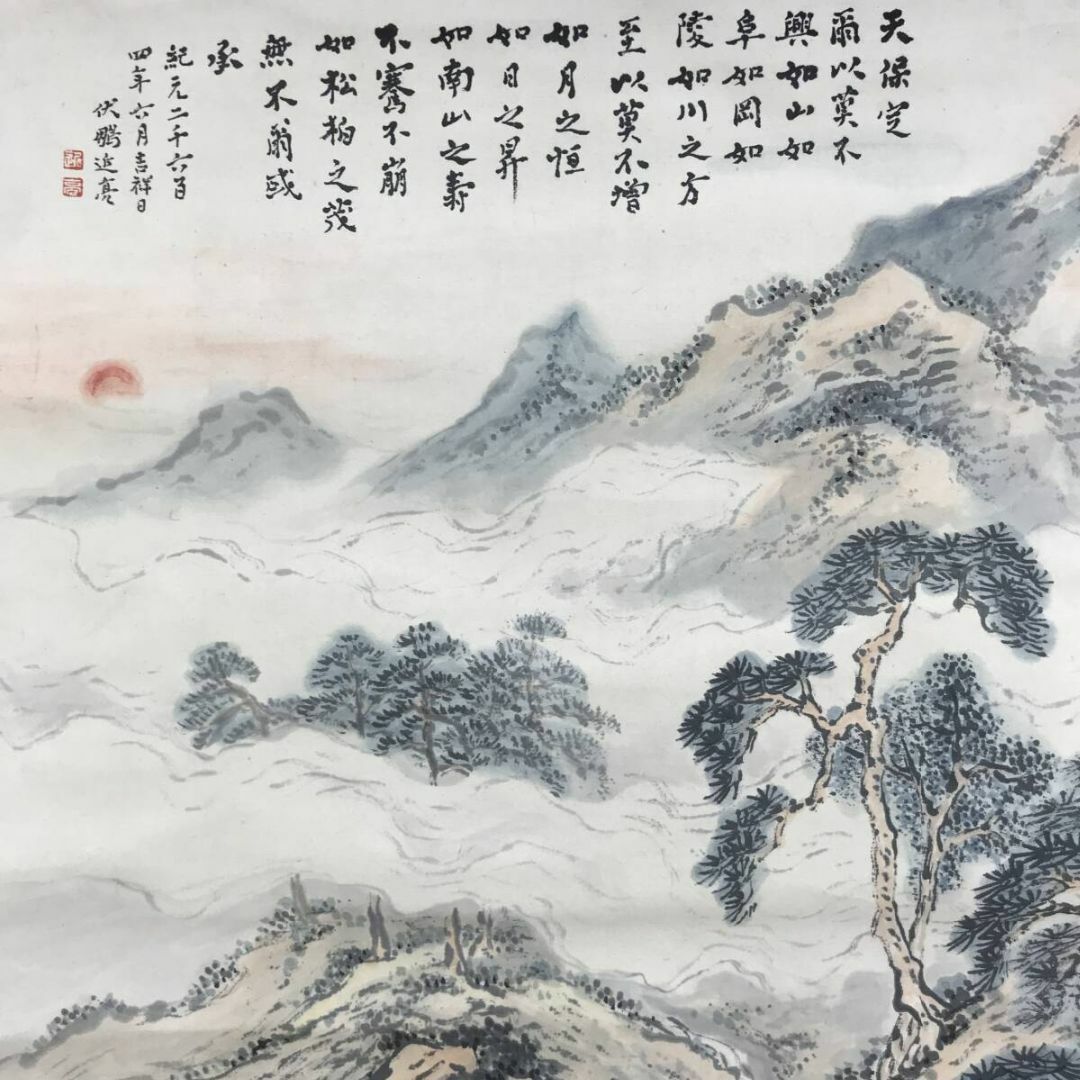 天保定
爾以莫不
興如山如
阜如岡如
陵如川之方
至以莫不增
如月之恒
如日之昇
如南山之壽
不騫不崩
如松柏之茂
無不爾或
承
紀元二千六百
四年六月吉祥日
伏鵬